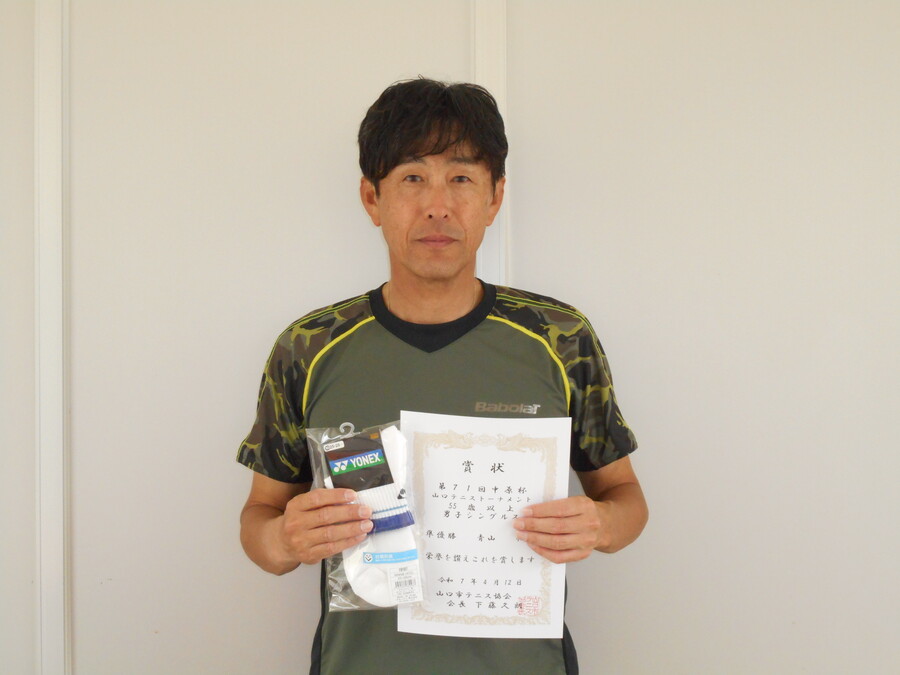 Babolat
YONEX
賞状
第71回中原杯
山口テニストーナメント
55歳以上
男子シングルス
準優勝 青山
栄誉を讃えこれを賞します
令和7年4月12日
山口市テニス協会
会長 下藤